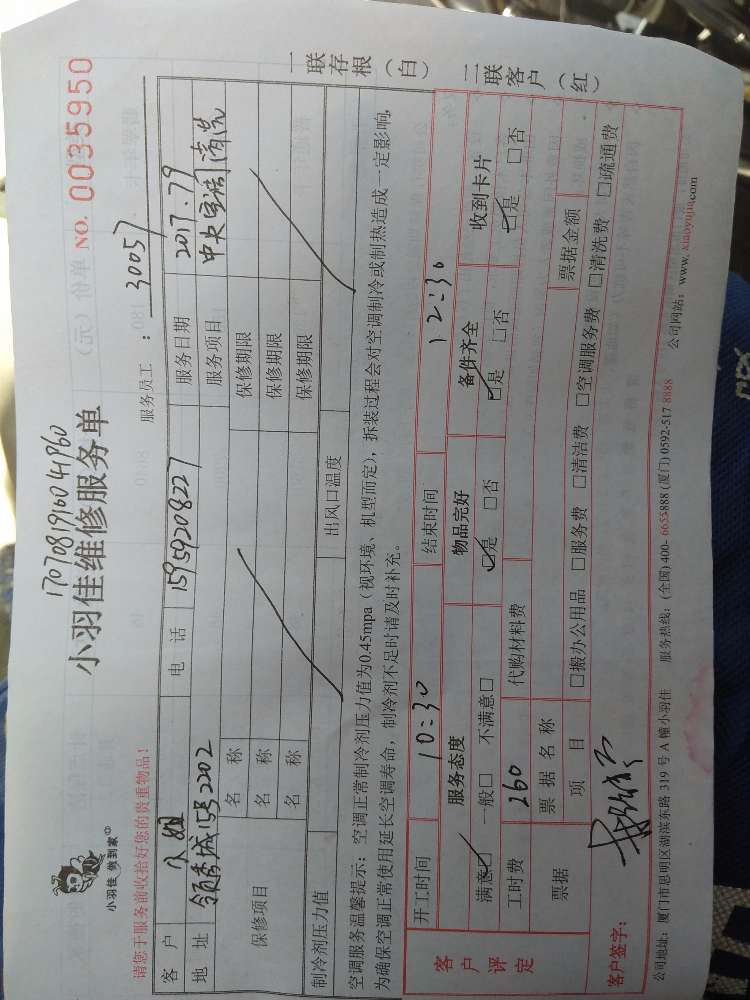 1707081916041960
小羽佳维修服务单
NO. 0035950
小羽佳 做到家
请您于服务前收拾好您的贵重物品!
服务员工 : 30057
客户 电话 15959208227 服务日期 2017.7.9
地址 领秀城 155 2202 服务项目 中央空调清洗
保修项目 名称 保修期限
名称 保修期限
名称 保修期限
制冷剂压力值 出风口温度
空调服务温馨提示:空调正常制冷剂压力值为0.45mpa(视环境、机型而定),拆装过程会对空调制冷或制热造成一定影响,
为确保空调正常使用延长空调寿命,制冷剂不足时请及时补充。
一联存根(白)
二联客户(红)
客户评定
开工时间 10:30 结束时间 12:30
服务态度 物品完好 备件齐全 收到卡片
满意☑ 一般□ 不满意□ ☑是 □否 ☑是 □否 ☑是 □否
工时费 260 代购材料费
票据 票据名称 票据金额
项目 □搬办公用品 □服务费 □清洁费 □空调服务费 □清洗费 □疏通费
客户签字:
公司地址:厦门市思明区湖滨东路 319 号 A 幢小羽佳 服务热线:(全国) 400-6655888 (厦门) 0592-517 8888 公司网站:www.xiaoyujia.com